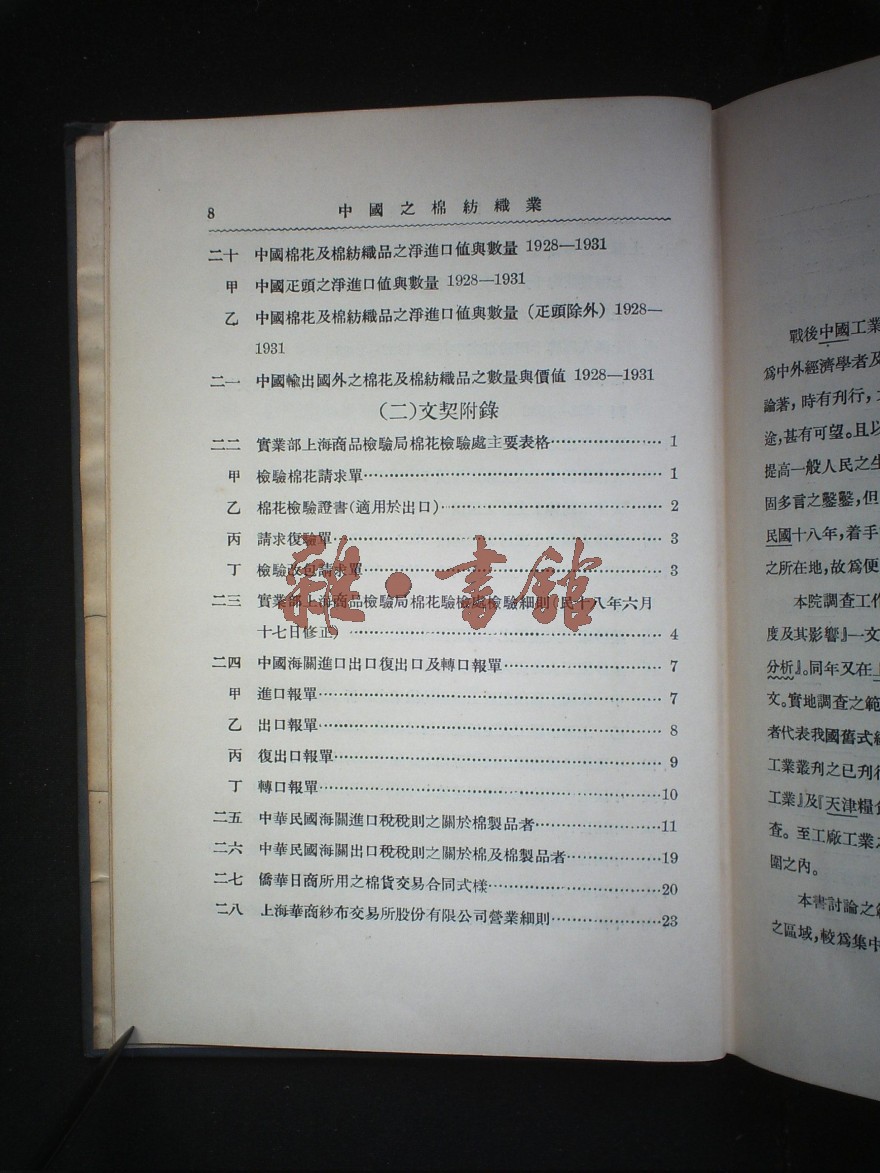 8 中國之棉紡織業
二十 中國棉花及棉紡織品之淨進口值與數量 1928—1931
甲 中國疋頭之淨進口值與數量 1928—1931
乙 中國棉花及棉紡織品之淨進口值與數量(疋頭除外) 1928—
1931
二一 中國輸出國外之棉花及棉紡織品之數量與價值 1928—1931
(二)文契附錄
二二 實業部上海商品檢驗局棉花檢驗處主要表格 1
甲 檢驗棉花請求單 1
乙 棉花檢驗證書(適用於出口) 2
丙 請求復驗單 3
丁 檢驗改包請求單 3
二三 實業部上海商品檢驗局棉花驗檢處檢驗細則(民十八年六月
十七日修正) 4
二四 中國海關進口出口復出口及轉口報單 7
甲 進口報單 7
乙 出口報單 8
丙 復出口報單 9
丁 轉口報單 10
二五 中華民國海關進口稅稅則之關於棉製品者 11
二六 中華民國海關出口稅稅則之關於棉及棉製品者 19
二七 僑華日商所用之棉貨交易合同式樣 20
二八 上海華商紗布交易所股份有限公司營業細則 23
雜·書館
戰後中國工業
為中外經濟學者及
論著,時有刊行,
途,甚有可望。且以
提高一般人民之生
固多言之鑿鑿,但
民國十八年,着手
之所在地,故為便
本院調查工作
度及其影響』一文
分析』。同年又在
文。實地調查之範
者代表我國舊式
工業叢刊之已刊行
工業』及『天津糧食
查。至工廠工業之
圍之內。
本書討論之
之區域,較為集中